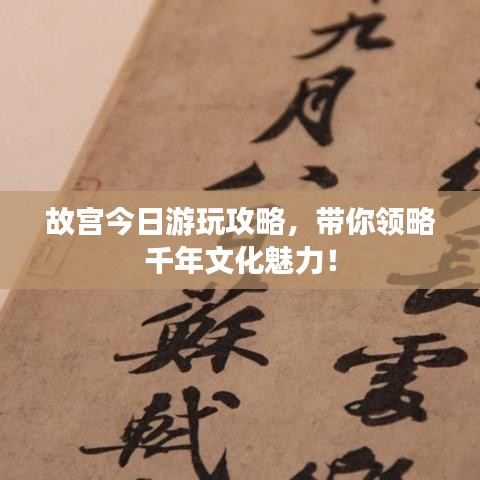 故宫今日游玩攻略，带你领略
千年文化魅力！
九月
八日
蘇軾
長
雲